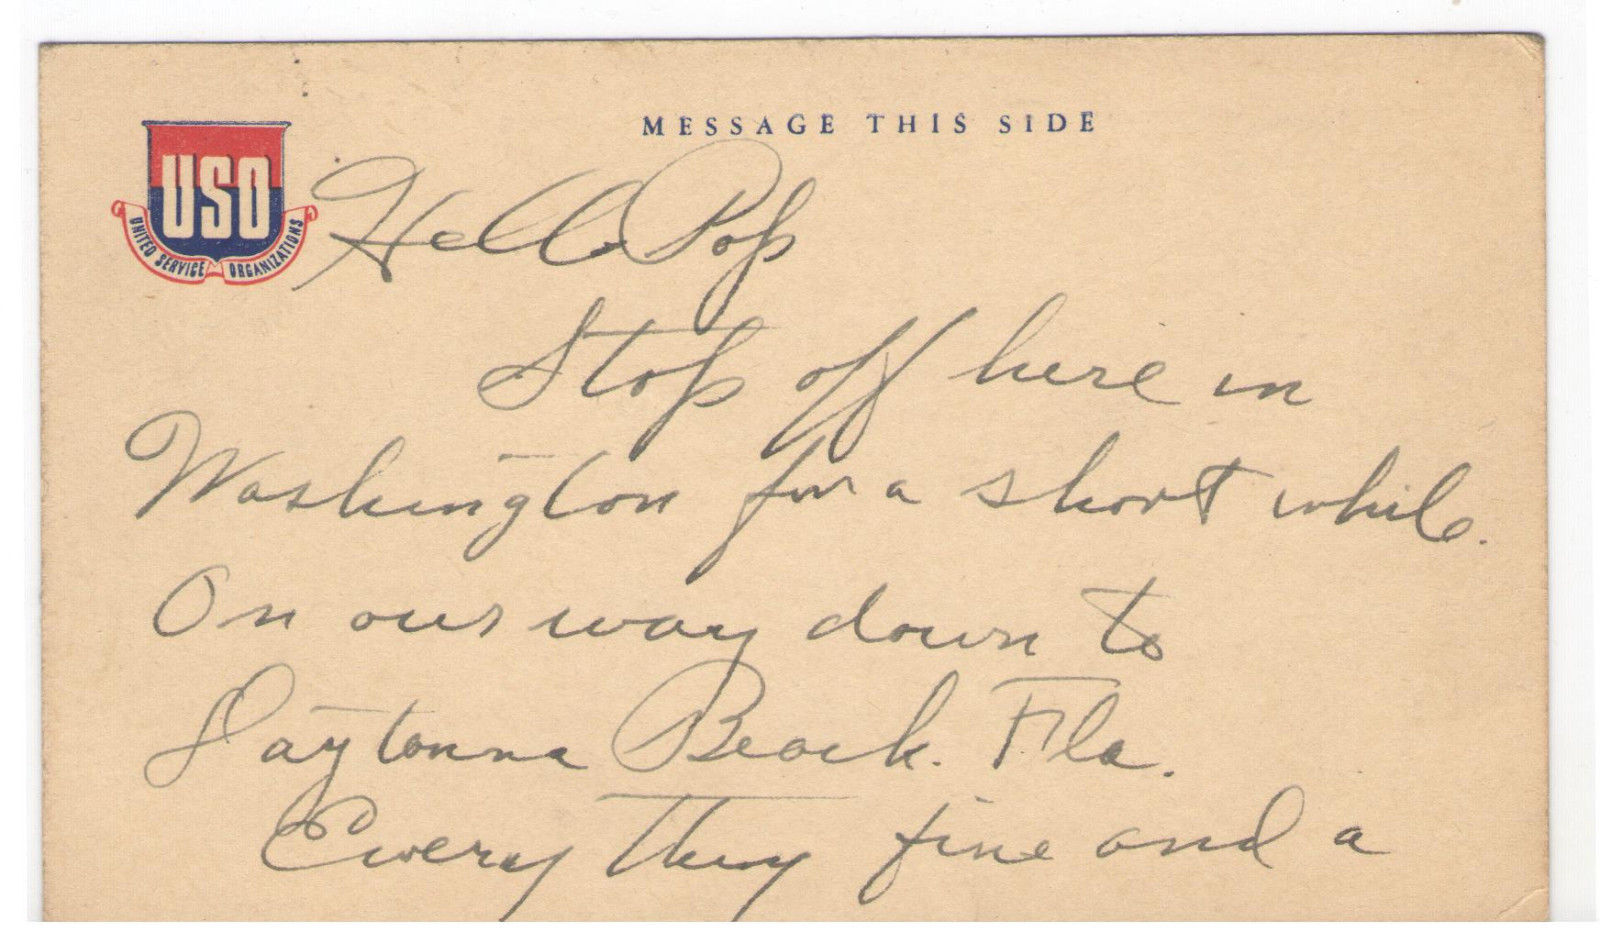 MESSAGE THIS SIDE
USO
UNITED SERVICE ORGANIZATIONS
Hello Pop
Stop off here in
Washington for a short while.
On our way down to
Daytonna Beach. Fla.
Every Thing fine and a